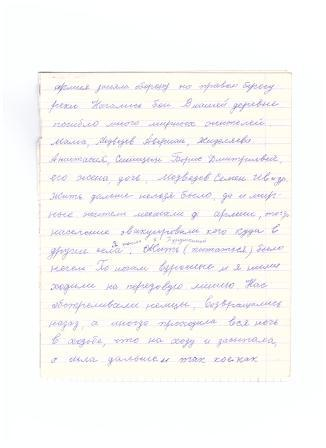 армия заняла оборону на правом берегу
реки Начались бои В нашей деревне
погибло много мирных жителей
Мама, Медведев Аверьян, Жиделева
Анастасия, Синицын Борис Дмитриевич,
его жена дочь. Медведев Семен
Жить дальше нельзя было, да и мир-
ные жители мешали армии, тогда
население эвакуировали кого куда в
другие села, Жить (питаться) было
нечем По ночам взрослые и я с ними
ходили на передовую линию Нас
обстреливали немцы, возвращались
назад, а иногда проходила вся ночь
в ходьбе, что на ходу и засыпала,
а была дальше и так ногах